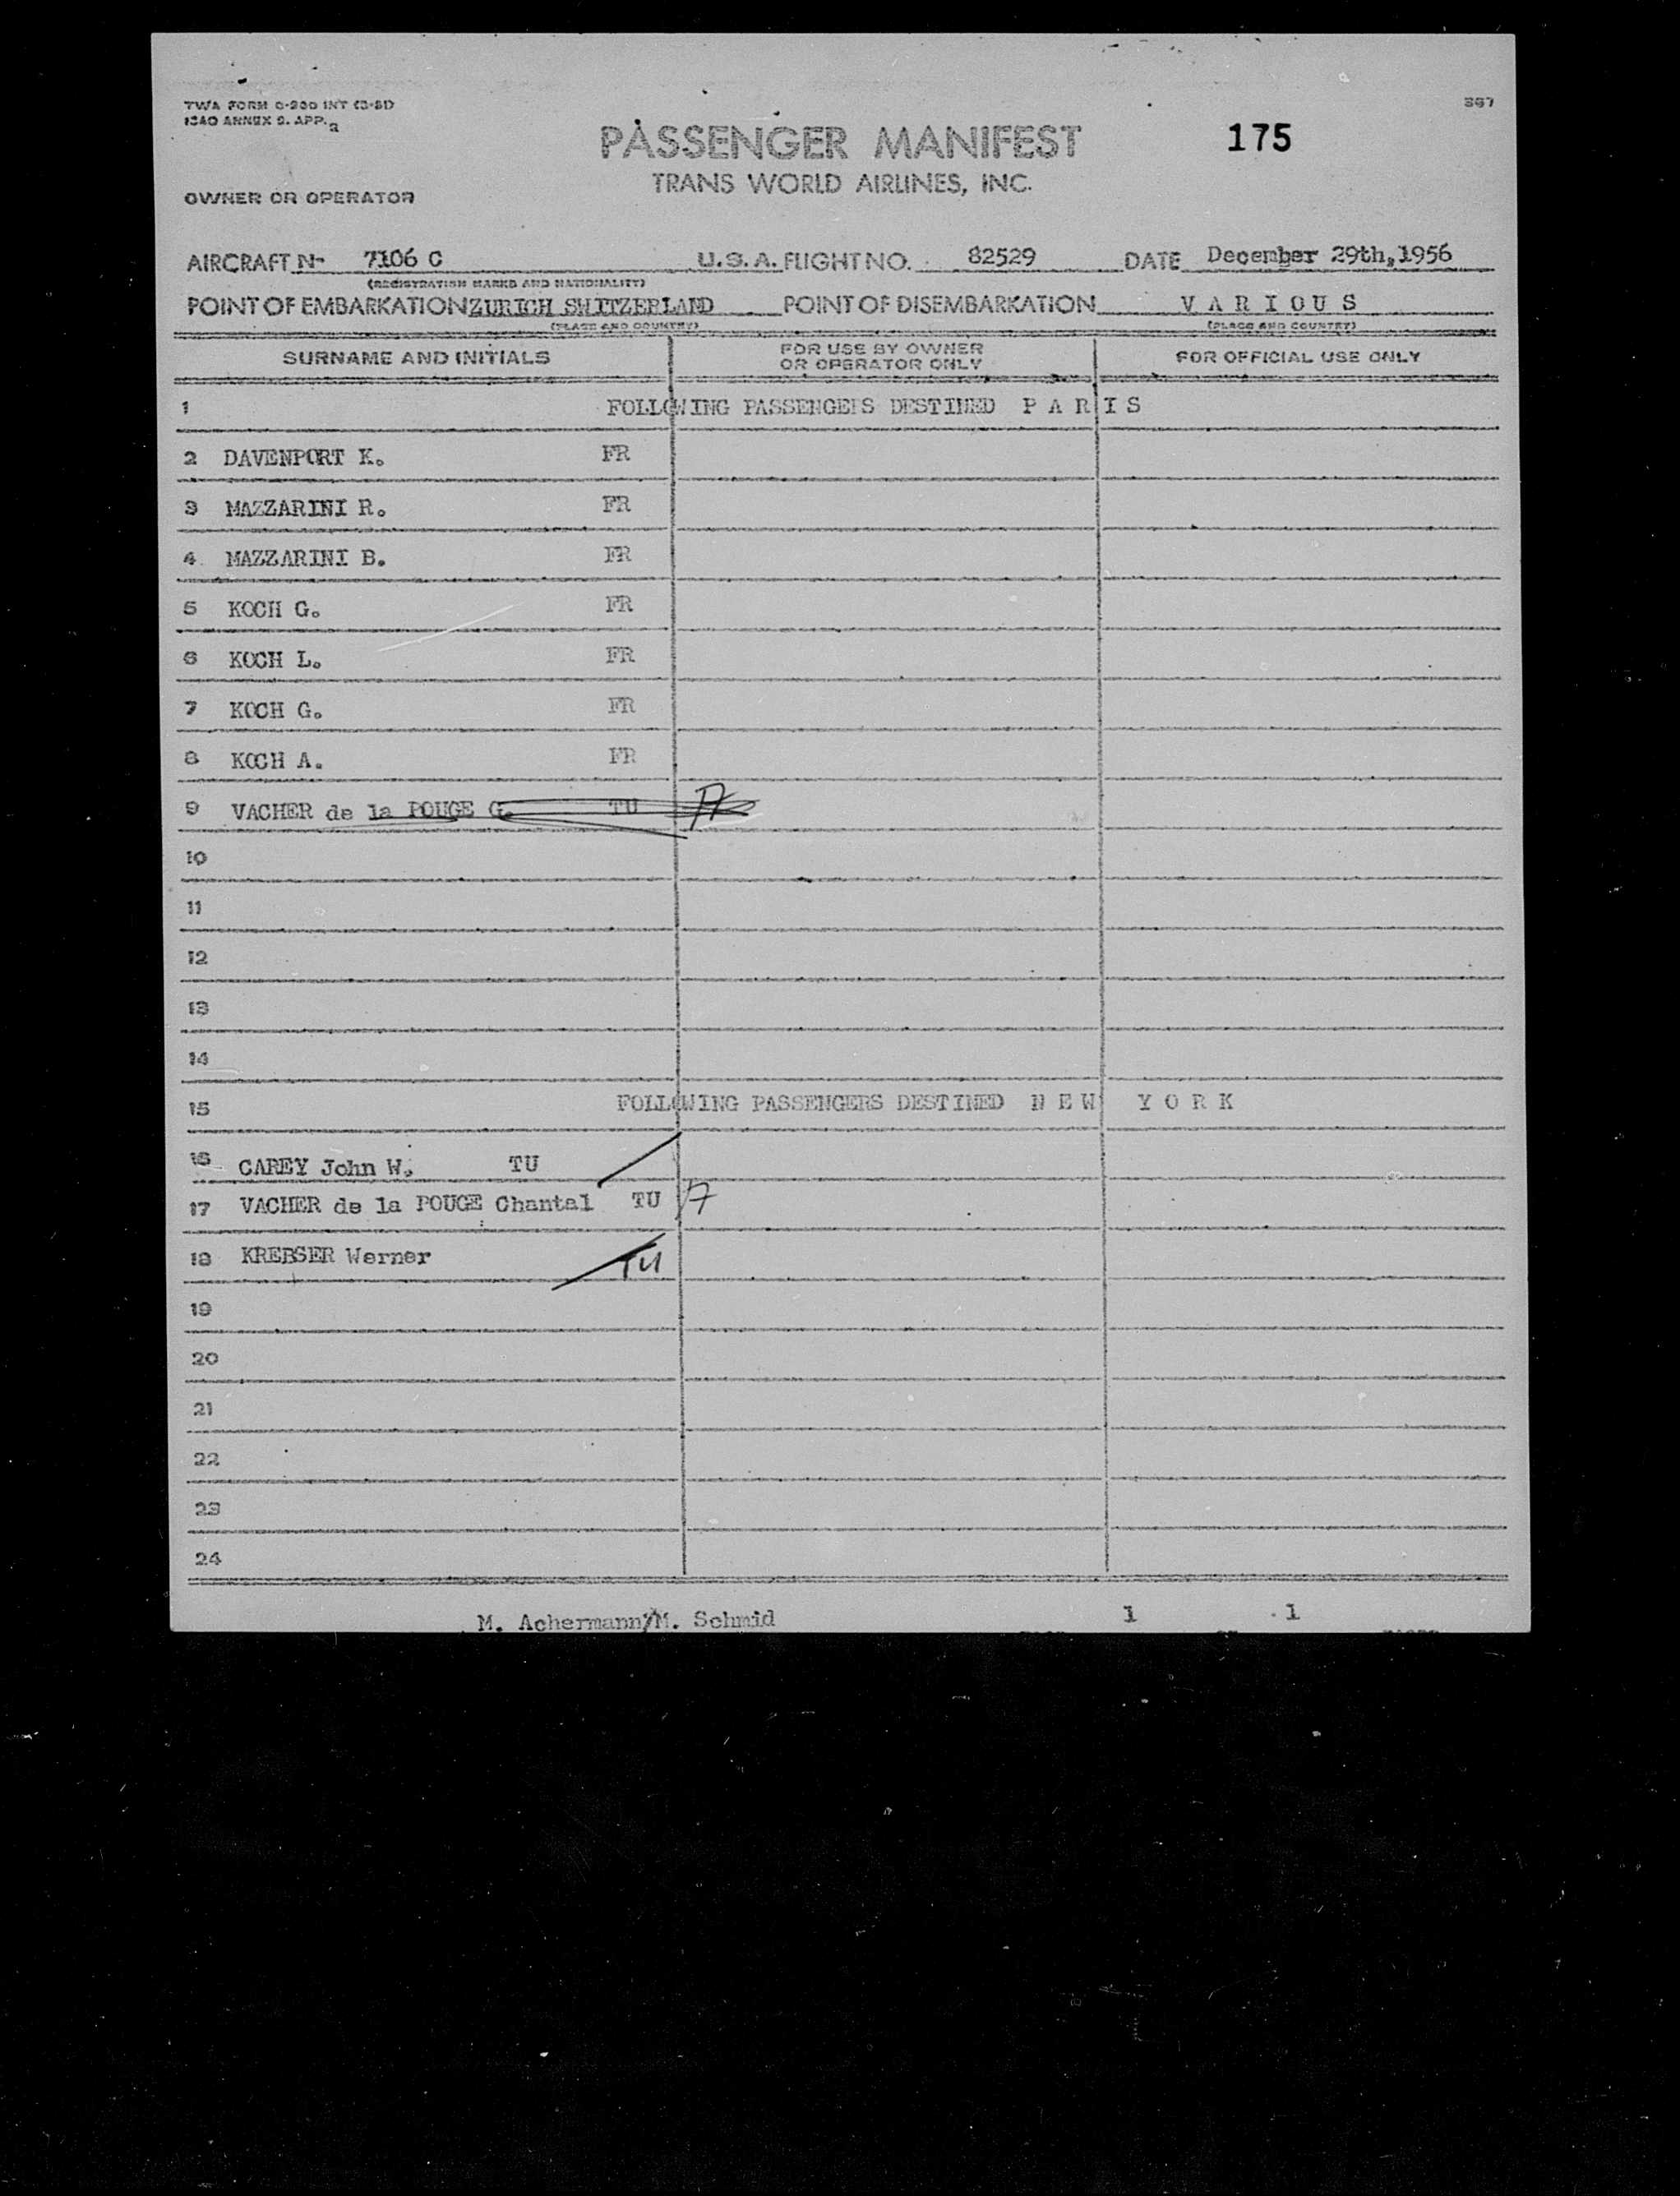 TWA FORM O-200 INT (3-51)
ICAO ANNEX 9. APP. 2
367
PASSENGER MANIFEST
175
TRANS WORLD AIRLINES, INC.
OWNER OR OPERATOR
AIRCRAFT N- 7106 C U.S.A. FLIGHT NO. 82529 DATE December 29th,1956
(REGISTRATION MARKS AND NATIONALITY)
POINT OF EMBARKATION ZURICH SWITZERLAND POINT OF DISEMBARKATION V A R I O U S
(PLACE AND COUNTRY) (PLACE AND COUNTRY)
SURNAME AND INITIALS FOR USE BY OWNER OR OPERATOR ONLY FOR OFFICIAL USE ONLY
1 FOLLOWING PASSENGERS DESTINED P A R I S
2 DAVENPORT K. FR
3 MAZZARINI R. FR
4 MAZZARINI B. FR
5 KOCH G. FR
6 KOCH L. FR
7 KOCH G. FR
8 KOCH A. FR
9 VACHER de la POUGE G. TU
10
11
12
13
14
15 FOLLOWING PASSENGERS DESTINED N E W Y O R K
16 CAREY John W. TU
17 VACHER de la POUGE Chantal TU
18 KREBSER Werner TU
19
20
21
22
23
24
M. Achermann/M. Schmid 1 1